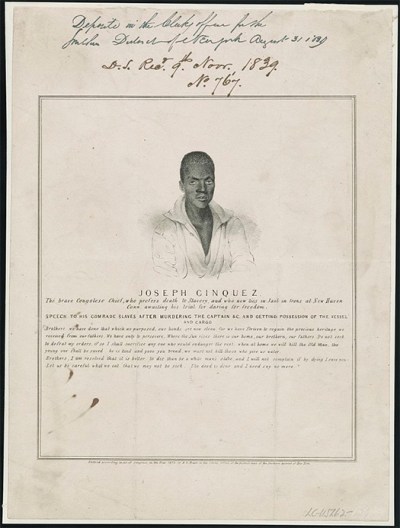 Deposited in the Clerks office for the
Southern District of New York August 31 1839
D.S. Recd. 9th Novr. 1839.
No. 767.
JOSEPH CINQUEZ
The brave Congolese Chief, who prefers death to Slavery, and who now lies in Jail in Irons at New Haven
Conn. awaiting his trial for daring for freedom.
SPEECH TO HIS COMRADE SLAVES AFTER MURDERING THE CAPTAIN &C. AND GETTING POSSESSION OF THE VESSEL
AND CARGO
Brothers, we have done that which we purposed, our hands are now clean for we have Striven to regain the precious heritage we
received from our fathers. We have only to persevere. Where the Sun rises there is our home, our brethren, our fathers. Do not seek
to defeat my orders, if so I shall sacrifice any one who would endanger the rest, when at home we will kill the Old Man, the
young one shall be saved he is kind and gave you bread, we must not kill those who give us water.
Brothers, I am resolved that it is better to die than be a white man's slave, and I will not complain if by dying I save you.
Let us be careful what we eat that we may not be sick. The deed is done and I need say no more."